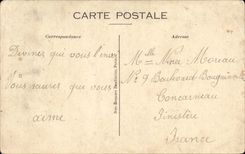 CARTE POSTALE
Correspondance
Adresse
Devinez qui vous l'envoie
Vous saurez qui vous
aime
Mlle Nina Moreau
No 9 Boulevard Bougainville
Concarneau
Finistère
France